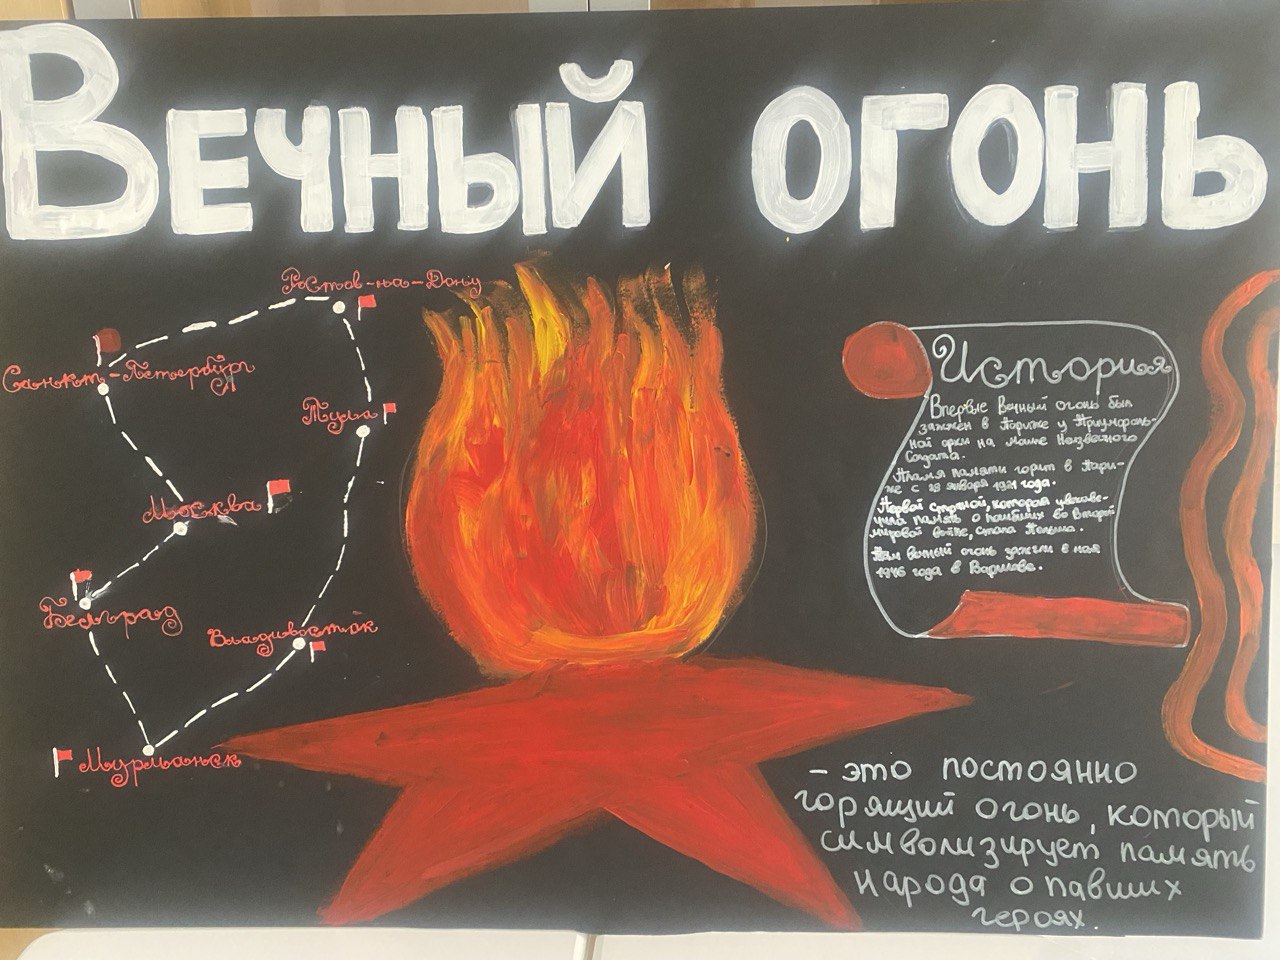 Вечный огонь
Ростов-на-Дону
Санкт-Петербург
Тула
Москва
Белград
Владивосток
Мурманск
История
Впервые Вечный огонь был
зажжен в Париже у Триумфаль-
ной арки на могиле Неизвестного
Солдата.
Пламя памяти горит в Пари-
же с 28 января 1921 года.
Первой страной, которая увекове-
чила память о погибших во Второй
мировой войне, стала Польша.
Там вечный огонь зажгли 8 мая
1946 года в Варшаве.
- это постоянно
горящий огонь, который
символизирует память
народа о павших
героях.